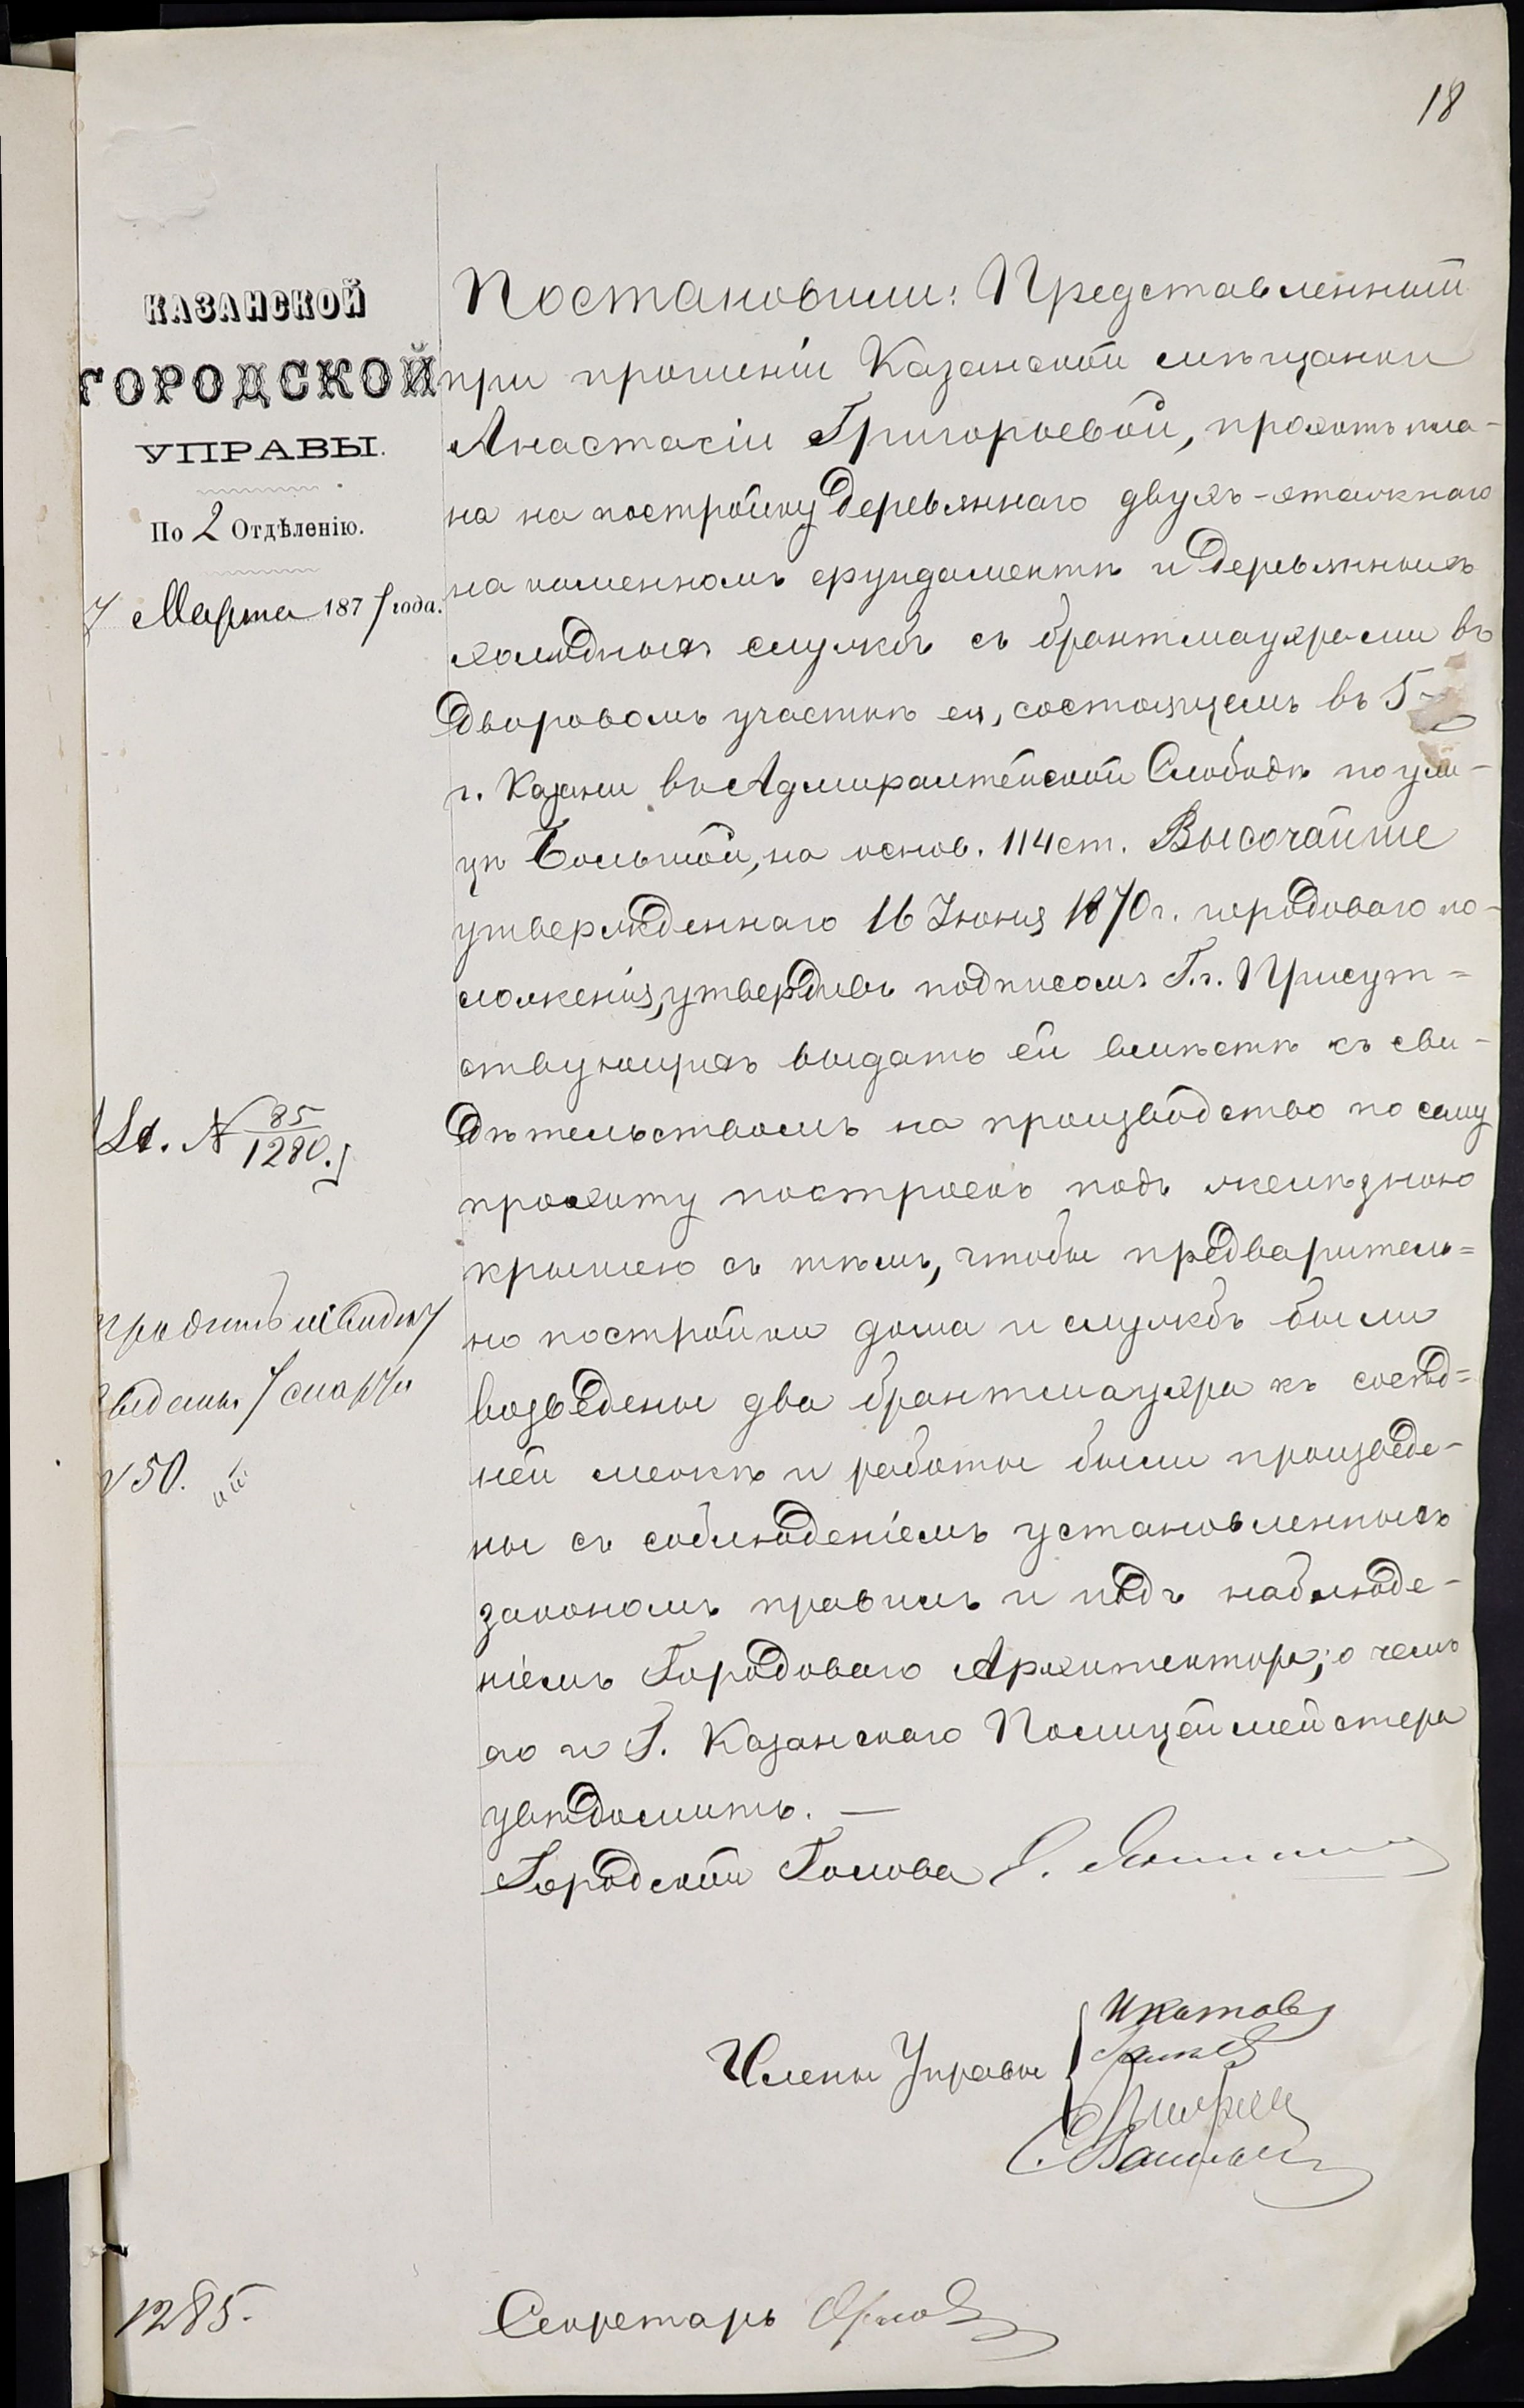 18
КАЗАНСКОЙ
ГОРОДСКОЙ
УПРАВЫ.
По 2 Отдѣленію.
7 Марта 1877 года.
Постановили: Представленный
при прошеніи Казанской мѣщанки
Анастасіи Григорьевой, проэктъ пла-
на на постройку деревяннаго двухъ-этажнаго
на каменномъ фундаментѣ и деревянныхъ
холодныхъ службъ съ брантмауэрами въ
дворовомъ участкѣ ея, состоящемъ въ 5
г. Казани въ Адмиралтейской Слободѣ по ули-
цѣ Большой, на основ. 114 ст. Высочайше
утвержденнаго 16 Іюня 1870 г. городоваго по-
ложенія, утвердивъ подписомъ Г.г. Присут-
ствующихъ выдать ей вмѣстѣ съ сви-
дѣтельствомъ на производство по сему
проэкту построекъ подъ желѣзною
крышею съ тѣмъ, чтобы предваритель-
но постройки дома и службъ были
возведены два брантмауэра къ сосѣд-
ней межѣ и работы были произведе-
ны съ соблюденіемъ установленныхъ
закономъ правилъ и подъ наблюде-
ніемъ Городоваго Архитектора; о чемъ
его и Г. Казанскаго Полицеймейстера
увѣдомить. —
Городской Голова
Члены Управы
Секретарь Орлов
№ 85
1280.
7 марта
№ 50.
1285.